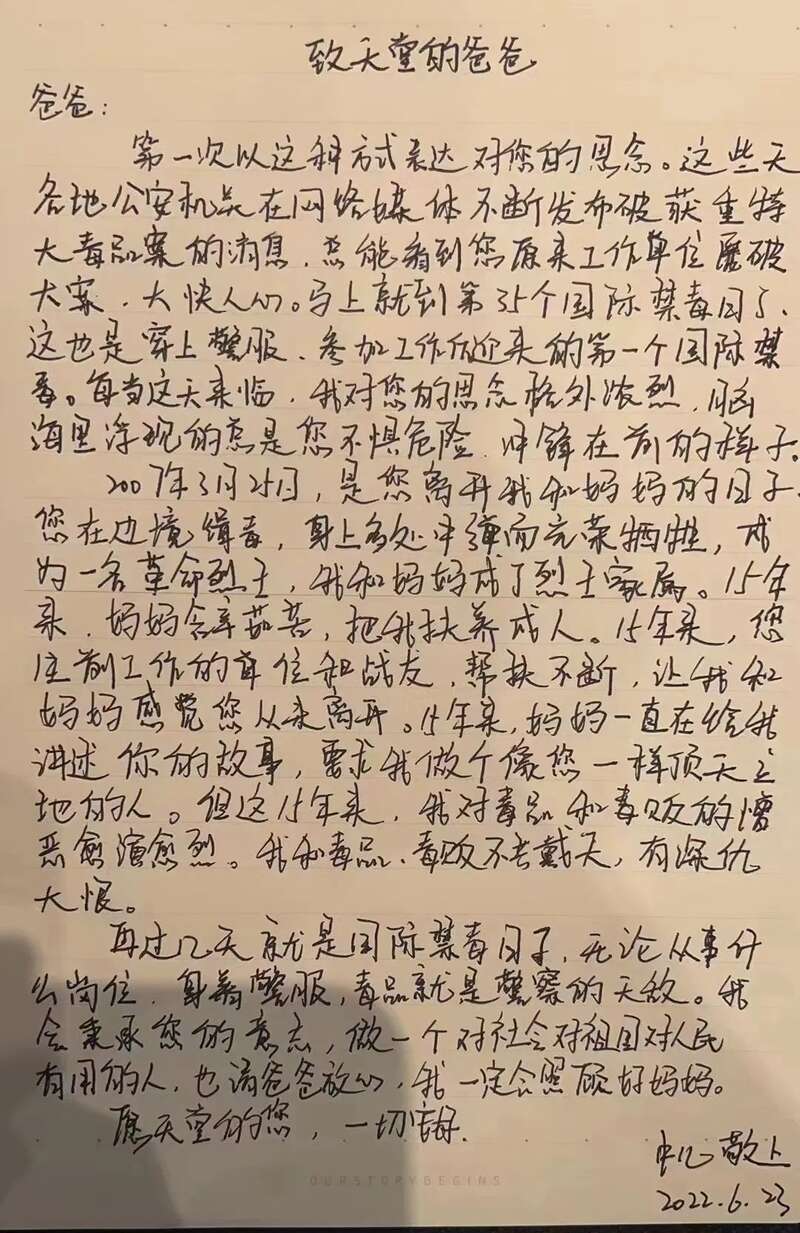 致天堂的爸爸
爸爸：
第一次以这种方式表达对您的思念。这些天
各地公安机关在网络媒体不断发布破获重特
大毒品案的消息，总能看到您原来工作单位屡破
大案，大快人心。马上就到第35个国际禁毒日了，
这也是穿上警服、参加工作后迎来的第一个国际禁
毒。每当这天来临，我对您的思念格外浓烈，脑
海里浮现的总是您不惧危险、冲锋在前的样子。
2007年3月25日，是您离开我和妈妈的日子，
您在边境缉毒，身上多处中弹而光荣牺牲，成
为一名革命烈士，我和妈妈成了烈士家属。15年
来，妈妈含辛茹苦，把我扶养成人。15年来，您
生前工作的单位和战友，帮扶不断，让我和
妈妈感觉您从未离开。15年来，妈妈一直在给我
讲述你的故事，要求我做个像您一样顶天立
地的人。但这15年来，我对毒品和毒贩的憎
恶愈演愈烈。我和毒品、毒贩不共戴天，有深仇
大恨。
再过几天就是国际禁毒日子，无论从事什
么岗位，身着警服，毒品就是警察的天敌。我
会秉承您的意志，做一个对社会对祖国对人民
有用的人，也请爸爸放心，我一定会照顾好妈妈。
愿天堂的您，一切安好.
敬上
2022.6.23
OURSTORYBEGINS